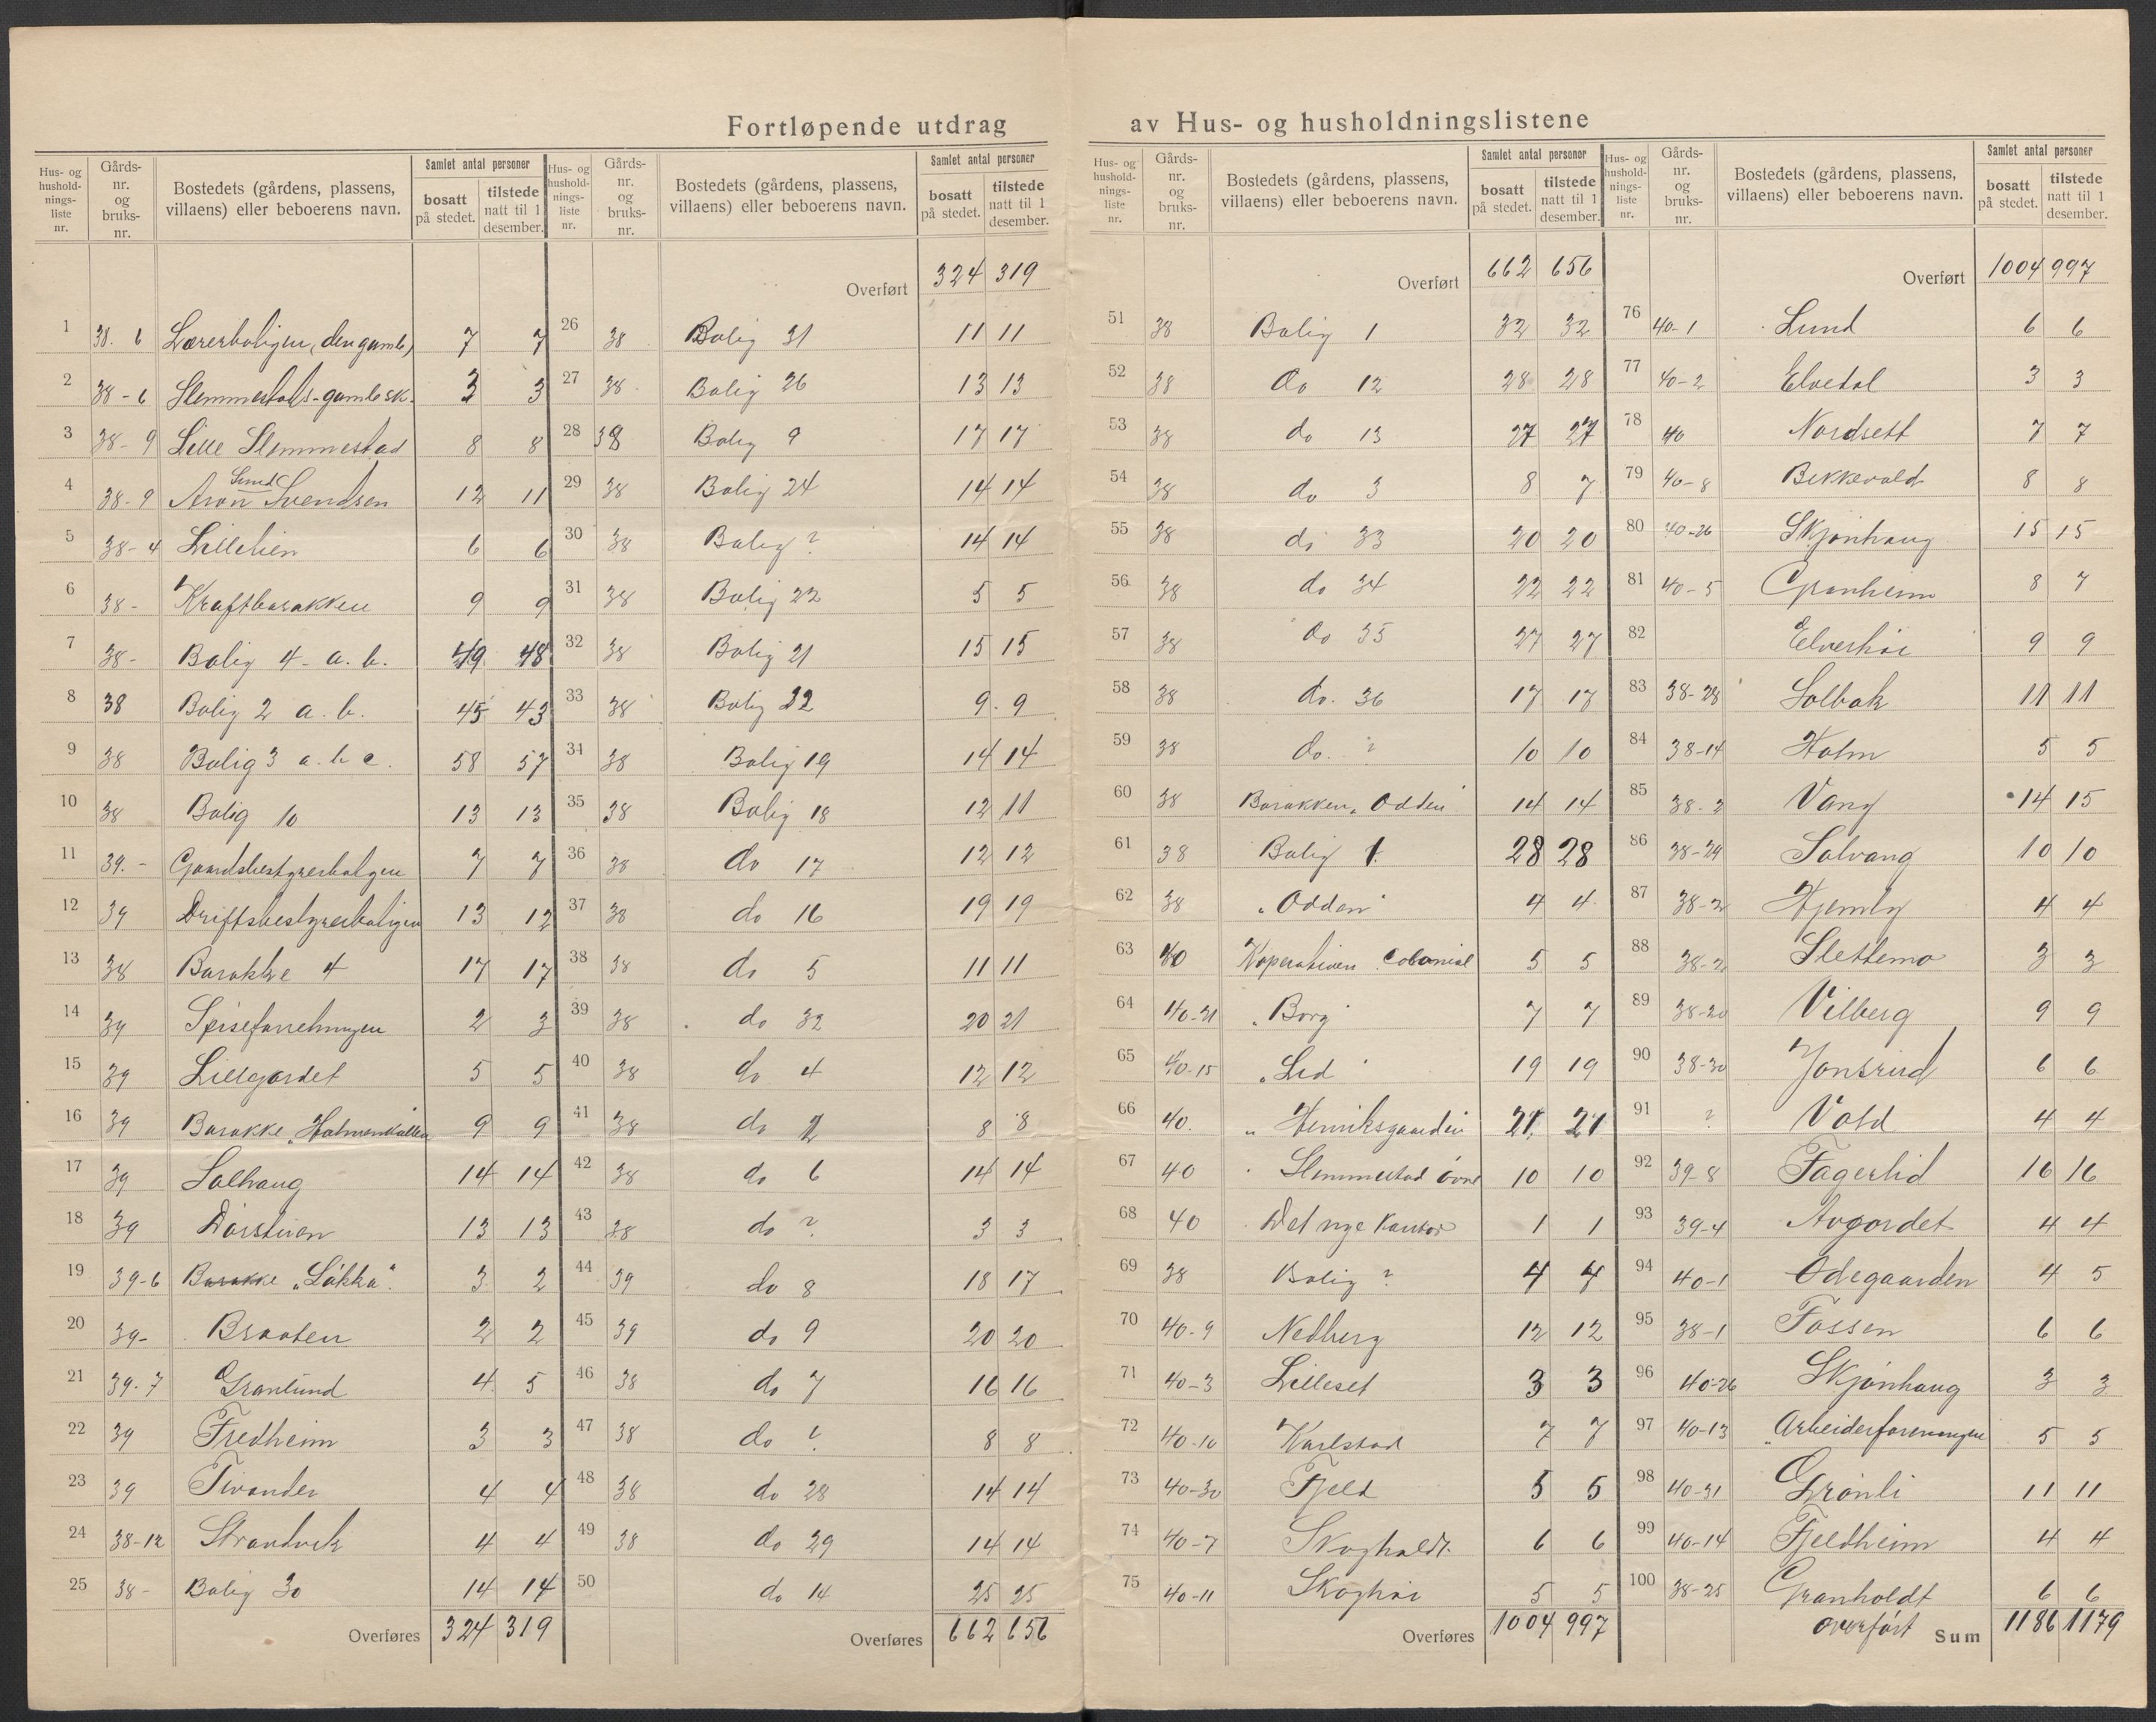 Fortløpende utdrag av Hus- og husholdningslistene
Hus- og husholdnings-liste nr. Gårds-nr. og bruks-nr. Bostedets (gårdens, plassens, villaens) eller beboerens navn. Samlet antal personer bosatt på stedet. tilstede natt til 1 desember.
1 38. 6 Lærerboligen (den gamle) 7 7
2 38-6 Slemmestads-gamle sk. 3 3
3 38-9 Lille Slemmestad 8 8
4 38-9 Aron Svendsen Lund 12 11
5 38-4 Lillelien 6 6
6 38- Kraftbarakken 9 9
7 38- Bolig 4-a.b. 49 48
8 38 Bolig 2 a.b. 45 43
9 38 Bolig 3 a.b c. 58 57
10 38 Bolig 10 13 13
11 39.- Gaardsbestyrerboligen 7 7
12 39 Driftsbestyrerboligen 13 12
13 38 Barakke 4 17 17
14 39 Spiseforretningen 2 3
15 39 Lillejordet 5 5
16 39 Barakke "Holmenkollen 9 9
17 39 Solhaug 14 14
18 39 Dørstuen 13 13
19 39-6 Barakke "Løkka". 3 2
20 39- Braaten 2 2
21 39-7 Granlund 4 5
22 39 Fredheim 3 3
23 39 Tirander 4 4
24 38-12 Strandvik 4 4
25 38- Bolig 30 14 14
Overføres 324 319
Hus- og husholdnings-liste nr. Gårds-nr. og bruks-nr. Bostedets (gårdens, plassens, villaens) eller beboerens navn. Samlet antal personer bosatt på stedet. tilstede natt til 1 desember.
Overført 324 319
26 38 Bolig 31 11 11
27 38 Bolig 26 13 13
28 38 Bolig 9 17 17
29 38 Bolig 24 14 14
30 38 Bolig ? 14 14
31 38 Bolig 22 5 5
32 38 Bolig 21 15 15
33 38 Bolig 22 9. 9
34 38 Bolig 19 14 14
35 38 Bolig 18 12 11
36 38 do 17 12 12
37 38 do 16 19 19
38 38 do 5 11 11
39 38 do 32 20 21
40 38 do 4 12 12
41 38 do 2 8 8
42 38 do 6 14 14
43 38 do ? 3 3
44 39 do 8 18 17
45 39 do 9 20 20
46 38 do 7 16 16
47 38 do ? 8 8
48 38 do 28 14 14
49 38 do 29 14 14
50 do 14 25 25
Overføres 662 656
Hus- og husholdnings-liste nr. Gårds-nr. og bruks-nr. Bostedets (gårdens, plassens, villaens) eller beboerens navn. Samlet antal personer bosatt på stedet. tilstede natt til 1 desember.
Overført 662 656
51 38 Bolig 1 32 32
52 38 do 12 28 28
53 38 do 13 27 27
54 38 do 3 8 7
55 38 do 33 20 20
56 38 do 34 22 22
57 38 do 35 27 27
58 38 do. 36 17 17
59 38 do. ? 10 10
60 38 Barakken "Odden" 14 14
61 38 Bolig 1. 28 28
62 38 "Odden" 4 4
63 40 Koperativen Colonial 5 5
64 40-21 "Borg" 7 7
65 40-15 "Led" 19 19
66 40. " Henriksgaarden 21 21
67 40 Slemmestad øvre 10 10
68 40 Det nye Kontor 1 1
69 38 Bolig ? 4 4
70 40-9 Nedberg 12 12
71 40-3 Lilleset 3 3
72 40-10 Karlstad 7 7
73 40-30 Fjeld 5 5
74 40-7 Skogholdt. 6 6
75 40-11 Skoghøi 5 5
Overføres 1004 997
Hus- og husholdnings-liste nr. Gårds-nr. og bruks-nr. Bostedets (gårdens, plassens, villaens) eller beboerens navn. Samlet antal personer bosatt på stedet. tilstede natt til 1 desember.
Overført 1004 997
76 40-1 Lund 6 6
77 40-2 Elvedal 3 3
78 40 Nordsett 7 7
79 40-8 Bekkevold 8 8
80 40-26 Skjønhaug 15 15
81 40-5 Granheim 8 7
82 Elverhøi 9 9
83 38-28 Solbak 11 11
84 38-14 Holm 5 5
85 38-2 Vang 14 15
86 38-29 Solvang 10 10
87 38-2 Hjemly 4 4
88 38-2 Slettemo 3 3
89 38-20 Vilberg 9 9
90 38-30 Jonsrud 6 6
91 ? Vold 4 4
92 39-8 Fagerlid 16 16
93 39-4 Avgordet 4 4
94 40-1 Ødegaarden 4 5
95 38-1 Fossen 6 6
96 40-26 Skjønhaug 3 3
97 40-13 "Arbeiderforeningen 5 5
98 40-31 Grønli 11 11
99 40-14 Fjeldheim 4 4
100 38-25 Granholdt 6 6
overført Sum 1186 1179